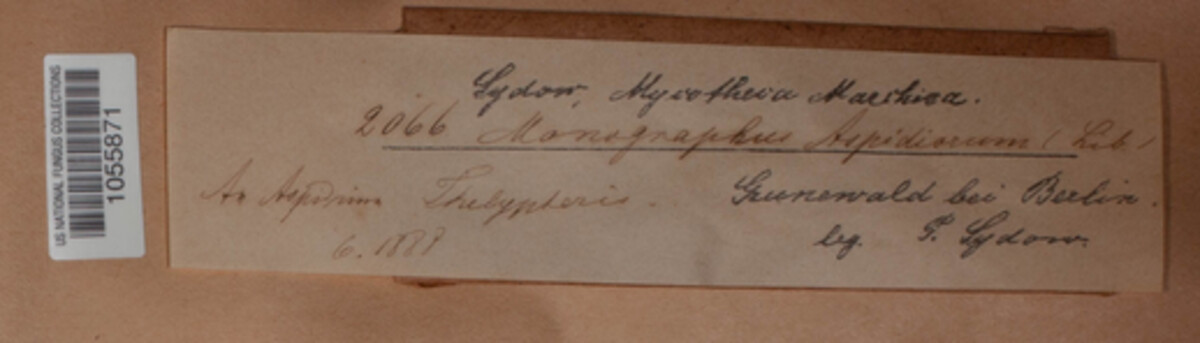 US NATIONAL FUNGUS COLLECTIONS
1055871
Sydow, Mycotheca Marchica.
2066 Monographus Aspidiorum (Lib)
An Aspidium Thelypteris.
Grunewald bei Berlin.
6. 1888
leg. P. Sydow.